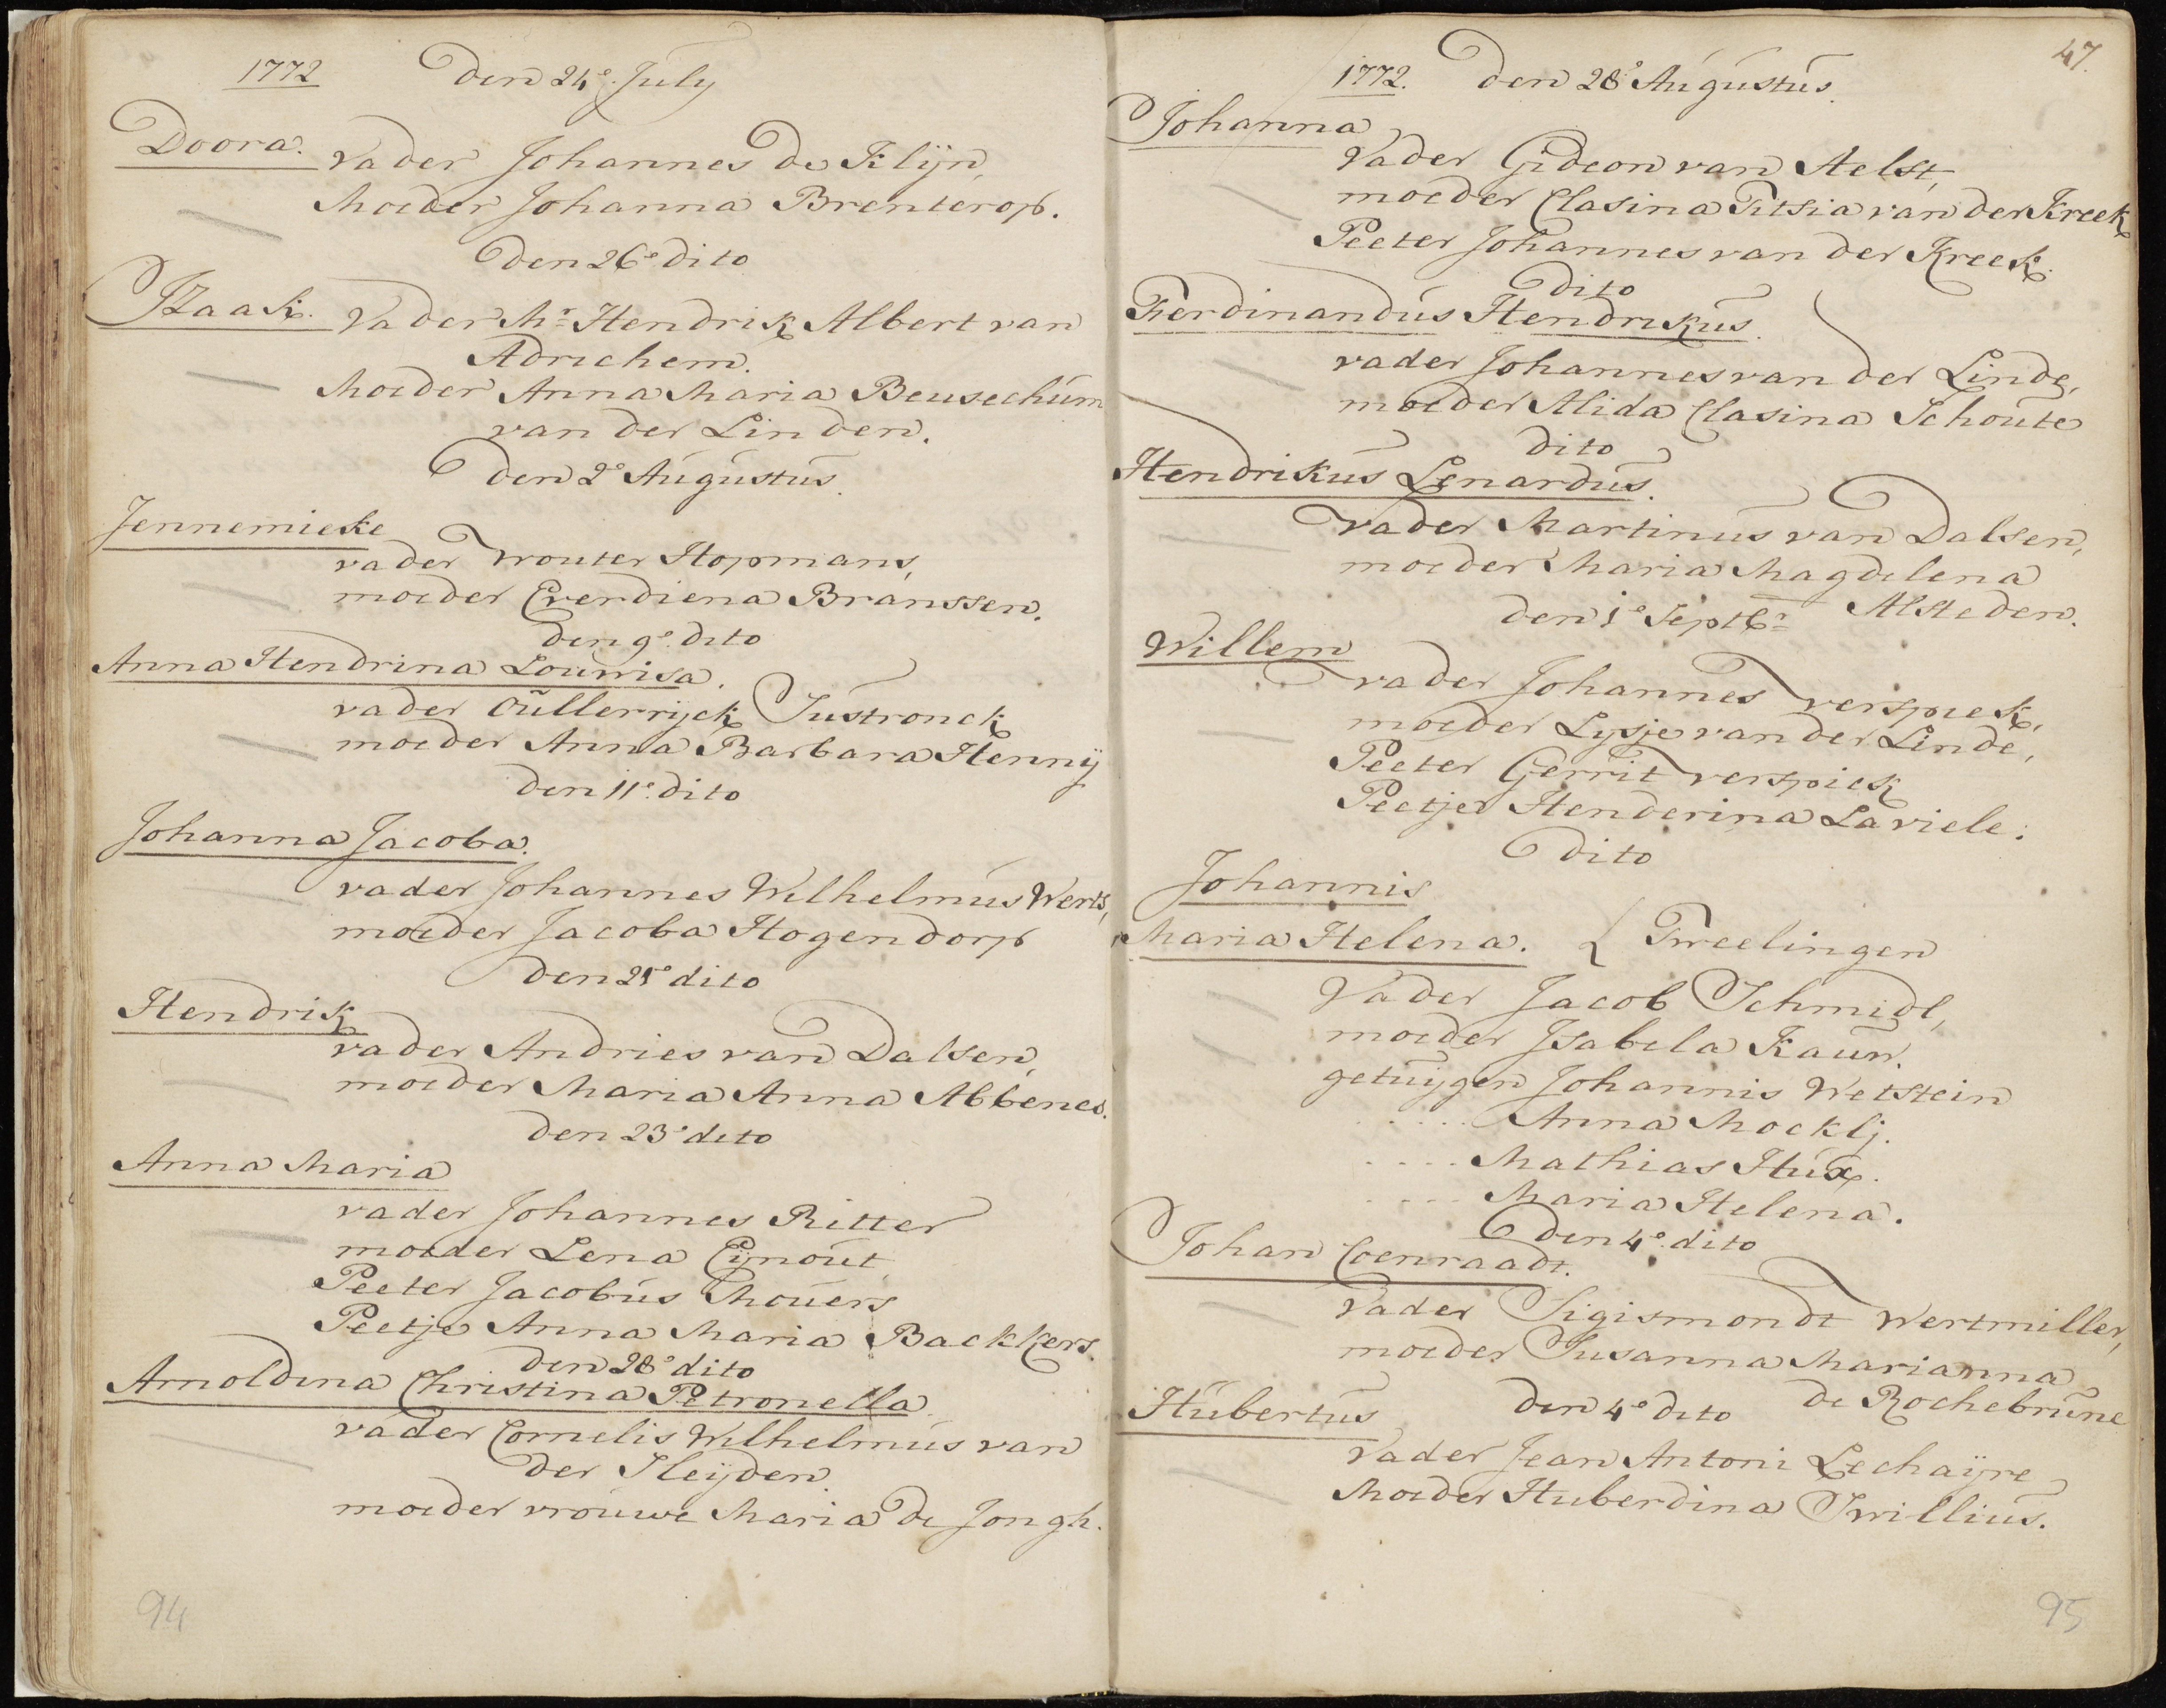 1772 Den 24e July
Doora. Vader Johannes de Klijn,
Moeder Johanna Brenterop.
Den 26e dito
IZaak. Vader Mr. Hendrik Albert van
Adrichem.
Moeder Anna Maria Beusechum
van der Linden.
Den 2e Augustus.
Jennemieke
vader Wouter Hopmans,
moeder Everdiena Branssen.
Den 9e dito
Anna Hendrina Louwisa.
vader Oullerryck Sustronck
moeder Anna Barbara Henny
Den 11e dito
Johanna Jacoba.
vader Johannes Wilhelmus Werts,
moeder Jacoba Hogendorp
Den 21e dito
Hendrik
vader Andries van Dalsen,
moeder Maria Anna Abbenes.
Den 23e dito
Anna Maria
vader Johannes Ritter
moeder Lena Eijnout
Peeter Jacobus Mouers
Peetje Anna Maria Backkers.
Den 28e dito
Arnoldina Christina Petronella
vader Cornelis Wilhelmus van
der Heijden.
moeder vrouwe Maria de Jongh.
94
47.
1772. Den 28e Augustus.
Johanna
Vader Gideon van Aelst,
moeder Clasina Pitsia van der Kreek
Peeter Johannes van der Kreek.
Dito
Ferdinandus Hendrikus.
vader Johannes van der Linde,
moeder Alida Clasina Schoute
dito
Hendrikus Lenardus.
vader Martinus van Dalsen,
moeder Maria Magdelena
Alsteden.
Den 1e Septbr
Willem
vader Johannes verspiek,
moeder Lysje van der Linde,
Peeter Gerrit verspiek
Peetje Henderina Laviele.
dito
Johannis
Maria Helena. { Tweelingen
Vader Jacob Schmidt,
moeder Isabela Kaun.
getuygen Johannis Wetstein
..... Anna Mocklj.
.... Mathias Hux.
.... Maria Helena.
Den 4e dito
Johan Coenraadt.
Vader Sigismondt Wertmiller,
moeder Susanna Marianna
de Rochebrune
Den 4e dito
Hubertus
Vader Jean Antoni Lechaijre
Moeder Huberdina Swillius.
95